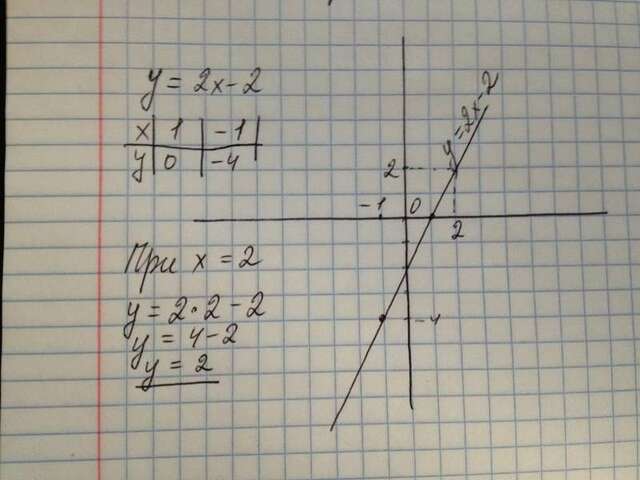 y = 2x - 2
x | 1 | -1
y | 0 | -4
При x = 2
y = 2·2 - 2
y = 4 - 2
y = 2
y = 2x - 2
2
-1 0
2
-4